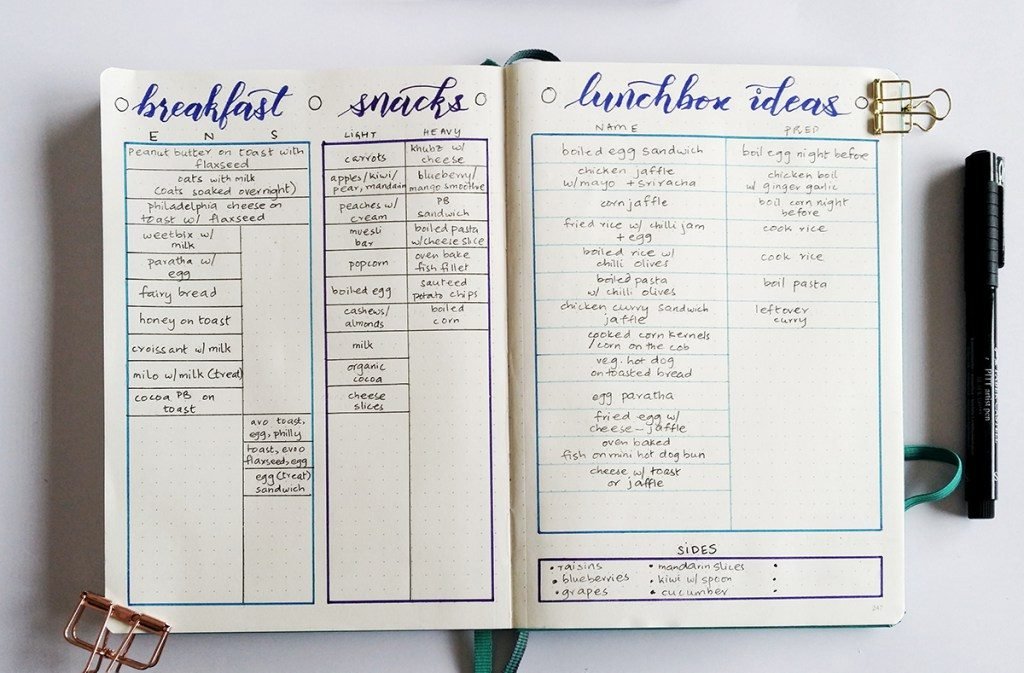 breakfast
E N S
Peanut butter on toast with
flaxseed
oats with milk
(oats soaked overnight)
philadelphia cheese on
toast w/ flaxseed
weetbix w/
milk
paratha w/
egg
fairy bread
honey on toast
croissant w/ milk
milo w/ milk (treat)
cocoa PB on
toast
avo toast,
egg, philly
toast, evoo
flaxseed, egg
egg (treat)
sandwich
snacks
LIGHT
carrots
apples/kiwi/
pear, mandarin
peaches w/
cream
muesli
bar
popcorn
boiled egg
cashews/
almonds
milk
organic
cocoa
cheese
slices
HEAVY
khubz w/
cheese
blueberry/
mango smoothie
PB
sandwich
boiled pasta
w/cheese slice
oven bake
fish fillet
sauteed
potato chips
boiled
corn
lunchbox ideas
NAME PREP
boiled egg sandwich boil egg night before
chicken jaffle chicken boil
w/mayo + sriracha w/ ginger garlic
corn jaffle boil corn night
before
fried rice w/ chilli jam cook rice
+ egg
boiled rice w/ cook rice
chilli olives
boiled pasta boil pasta
w/ chilli olives
chicken curry sandwich leftover
jaffle curry
cooked corn kernels
/corn on the cob
veg. hot dog
on toasted bread
egg paratha
fried egg w/
cheese - jaffle
oven baked
fish on mini hot dog bun
cheese w/ toast
or jaffle
SIDES
• raisins • mandarin slices •
• blueberries • kiwi w/ spoon •
• grapes • cucumber •
247
PITT artist pen